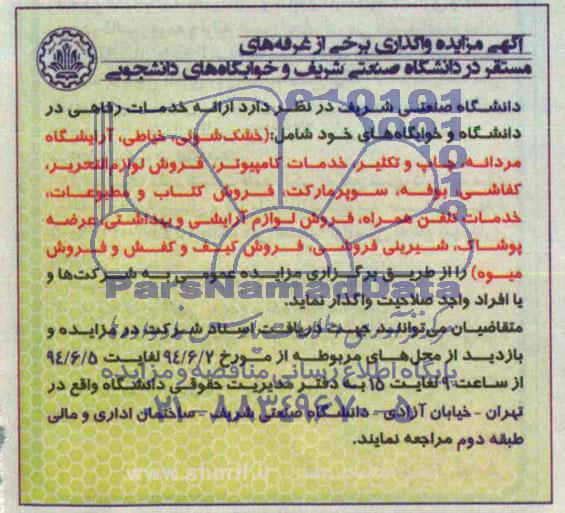 آگهی مزایده واگذاری برخی از غرفه‌های
مستقر در دانشگاه صنعتی شریف و خوابگاه‌های دانشجویی
دانشگاه صنعتی شریف در نظر دارد ارائه خدمات رفاهی در
دانشگاه و خوابگاه‌های خود شامل: (خشک‌شوئی، خیاطی، آرایشگاه
مردانه، چاپ و تکثیر، خدمات کامپیوتر، فروش لوازم‌التحریر،
کفاشی، بوفه، سوپرمارکت، فروش کتاب و مطبوعات،
خدمات تلفن همراه، فروش لوازم آرایشی و بهداشتی، عرضه
پوشاک، شیرینی فروشی، فروش کیف و کفش و فروش
میوه) را از طریق برگزاری مزایده عمومی به شرکت‌ها و
یا افراد واجد صلاحیت واگذار نماید.
متقاضیان می‌توانند جهت دریافت اسناد شرکت در مزایده و
بازدید از محل‌های مربوطه از مورخ ۹۴/۶/۲ لغایت ۹۴/۶/۵
از ساعت ۹ لغایت ۱۵ به دفتر مدیریت حقوقی دانشگاه واقع در
تهران - خیابان آزادی - دانشگاه صنعتی شریف - ساختمان اداری و مالی
طبقه دوم مراجعه نمایند.
www.sharif.ir
ParsNamadData
پایگاه اطلاع رسانی مناقصه و مزایده
۰۲۱-۸۸۳۴۹۶۷۰-۵